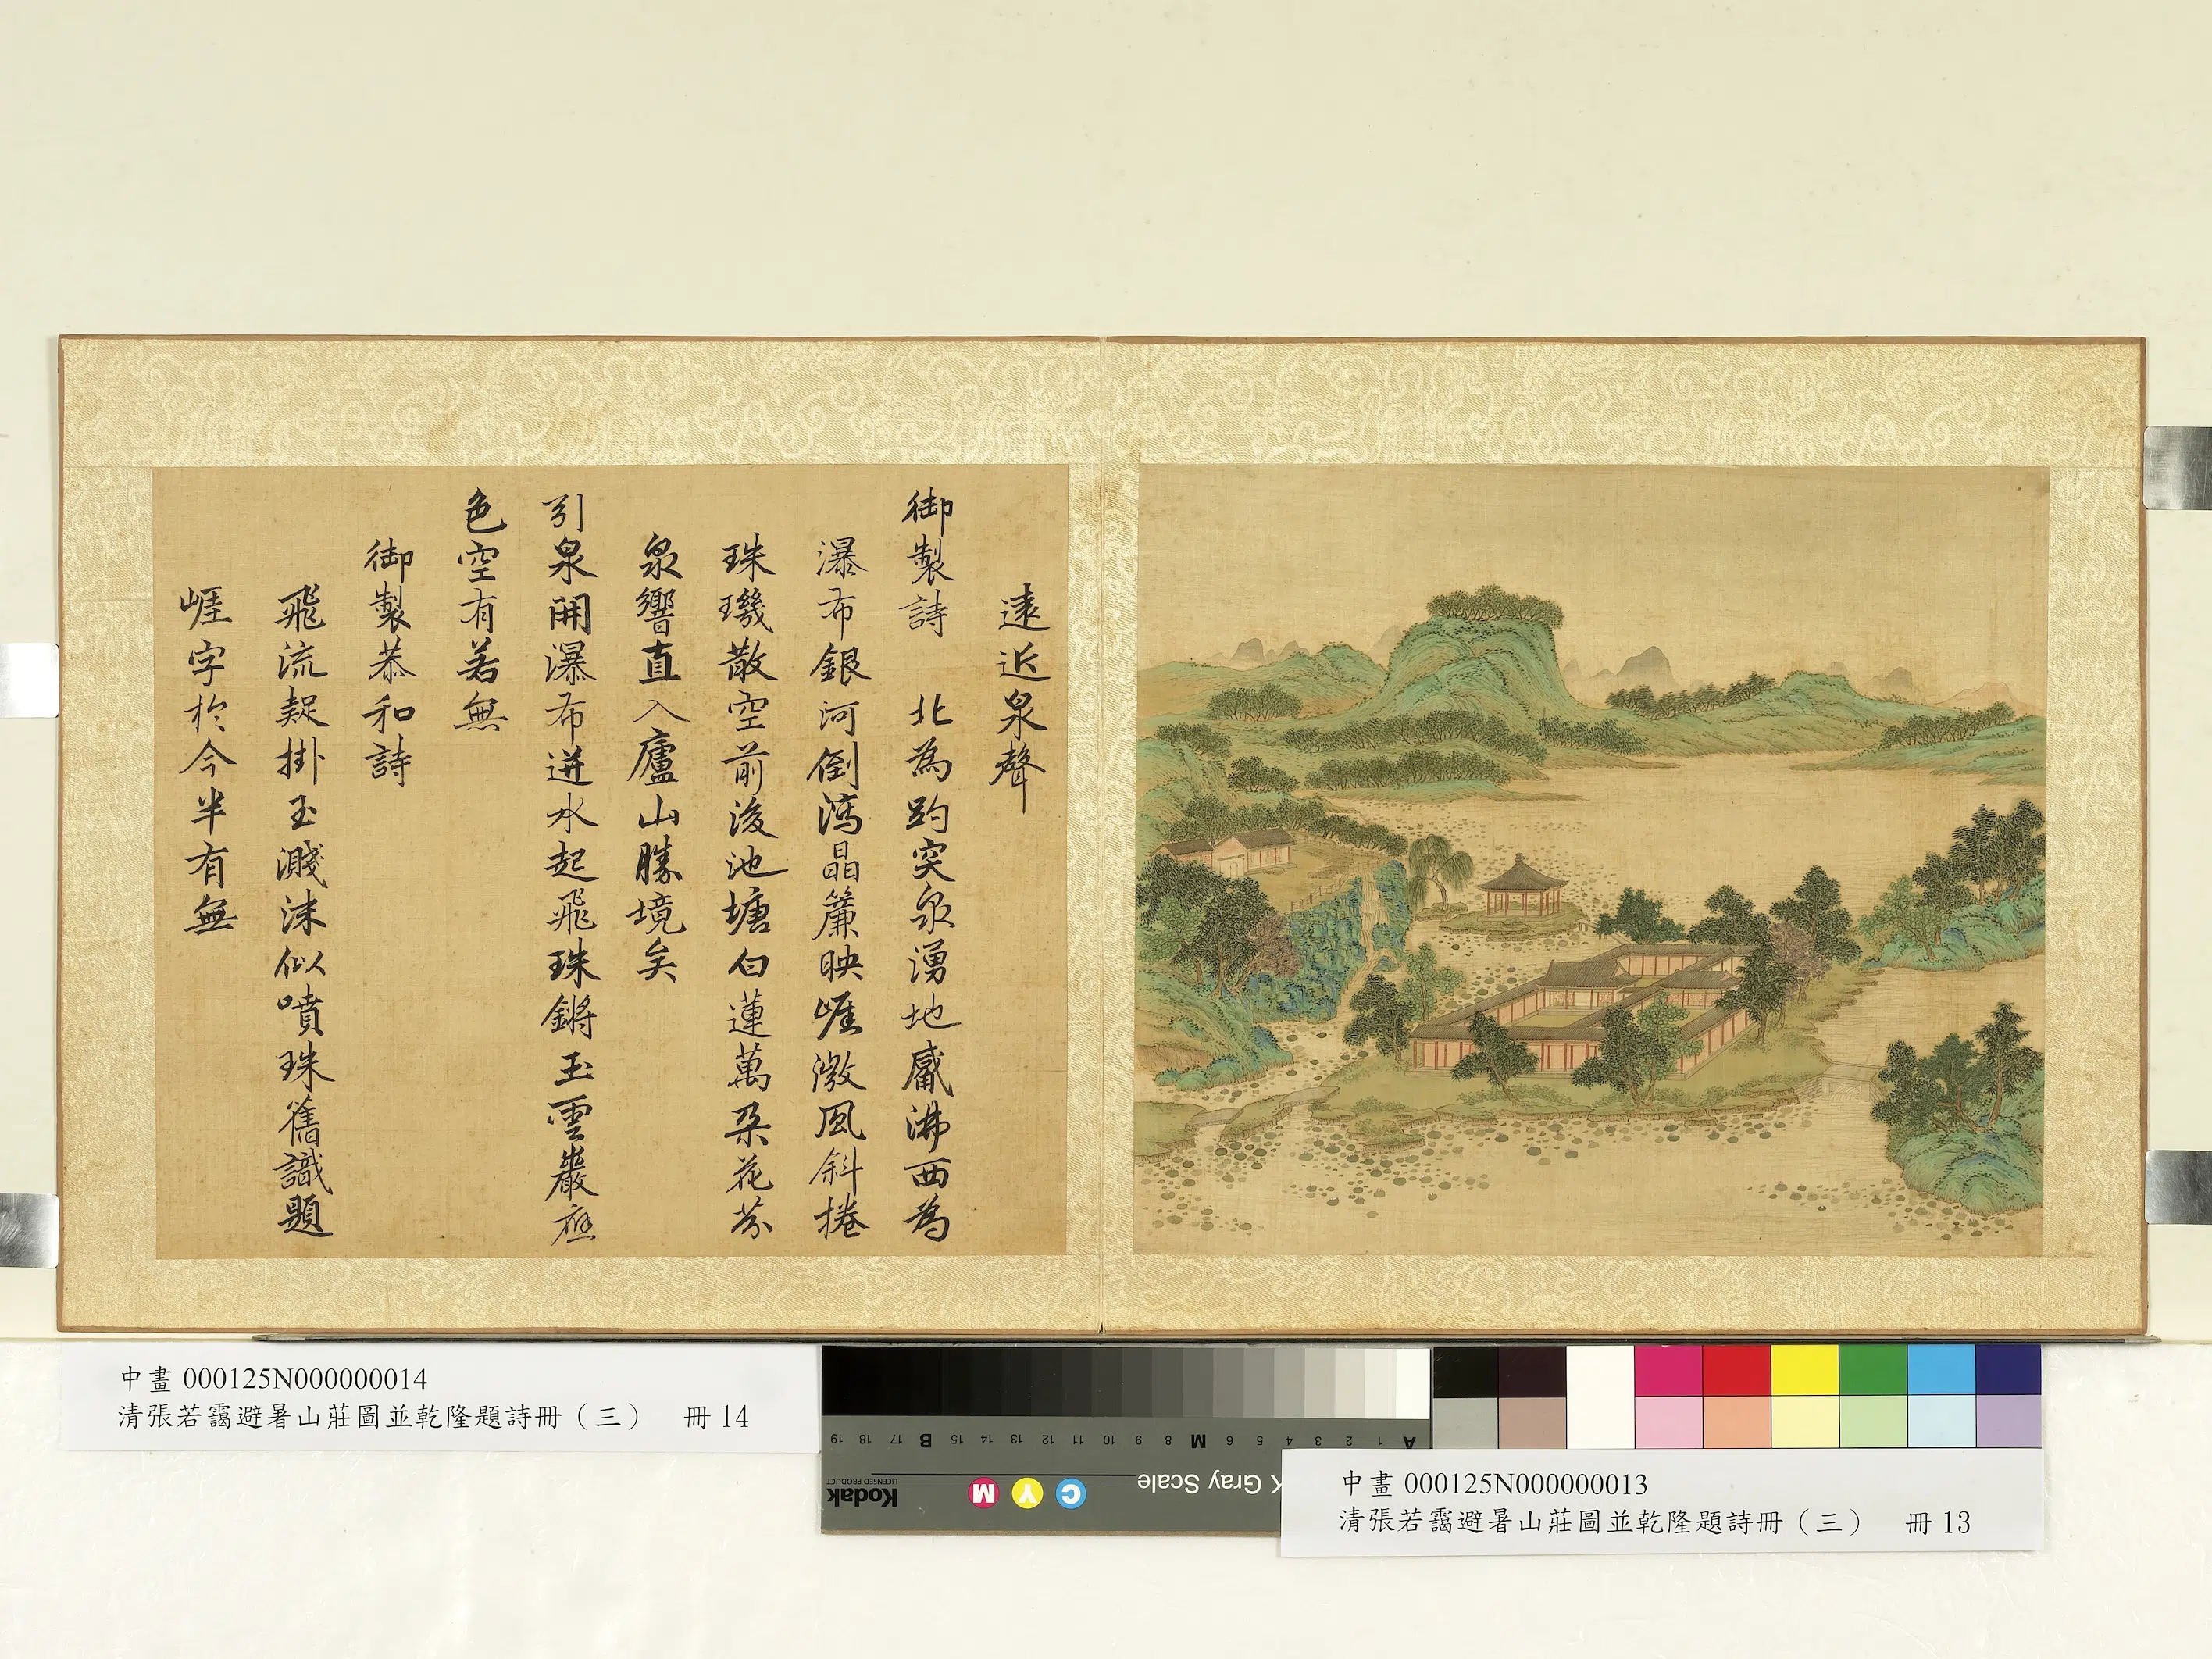 遠近泉聲
御製詩 北為趵突泉湧地觱沸西為
瀑布銀河倒瀉晶簾映崕激風斜捲
珠璣散空前後池塘白蓮萬朶花芬
泉響直入廬山勝境矣
引泉開瀑布迸水起飛珠鏘玉雲巖應
色空有若無
御製恭和詩
飛流疑掛玉濺沫似噴珠舊識題
崕字於今半有無
中畫 000125N000000014
清張若靄避暑山莊圖並乾隆題詩冊（三） 冊 14
19 18 17 B 15 14 13 12 11 10 9 8 M 6 5 4 3 2 1 A
Kodak
LICENSED PRODUCT
M Y C
Gray Scale
中畫 000125N000000013
清張若靄避暑山莊圖並乾隆題詩冊（三） 冊 13